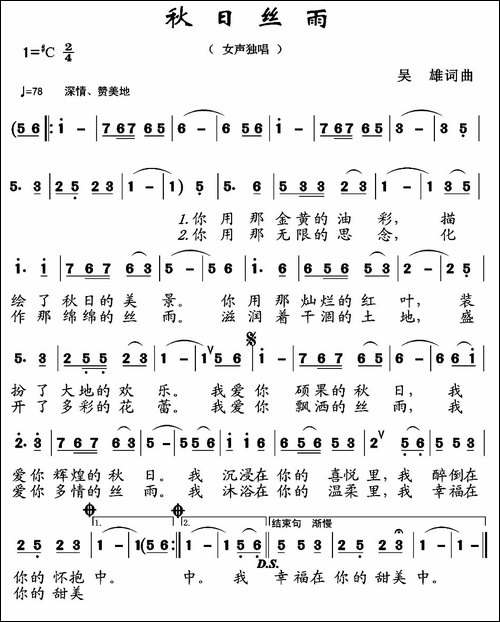 秋日丝雨
（女声独唱）
1=♯C 2/4
吴 雄词曲
♩=78 深情、赞美地
(5 6 ‖: i - | 7 6 7 6 5 | 6 - | 6 - | 3 5 6 7 6 5 | 3 - | 3 5 |
5· 3 | 2 5 2 3 | 1 - | 1) 5 | 5· 6 | 5 3 3 2 3 | 1 - | 1 3 5 |
1.你 用 那 金黄的 油 彩， 描
2.你 用 那 无限的 思 念， 化
i· i | 7 6 7 6 3 | 5 - | 5 5 | i· 6 | 5 6 7 6 3 | 2 - | 2 5 |
绘 了 秋日的 美 景。 你 用 那 灿烂的 红 叶， 装
作 那 绵绵的 丝 雨。 滋 润 着 干涸的 土 地， 盛
5· 3 | 2 5 5 2 3 | 1 - | 1 5 6 | i - | 7 6 7 6 5 | 6 - | 6 6 i |
扮 了 大地的 欢 乐。 我爱 你 硕果的 秋 日， 我
开 了 多彩的 花 蕾。 我爱 你 飘洒的 丝 雨， 我
2· 3 | 7 6 7 6 3 | 5 - | 5 5 5 | i i 6 | 5 6 5 3 | 2 5 6 | 5 3 |
爱你 辉煌的 秋 日。 我 沉浸在 你的 喜悦 里，我 醉倒在
爱你 多情的 丝 雨。 我 沐浴在 你的 温柔 里，我 幸福在
1. 2. 结束句 渐慢
2 5 2 3 | 1 - | 1 (5 6 :‖ 1 - | 1 5 5 ‖ 5 3 | 2 5 2 3 | 1 - | 1 - ‖
D.S.
你的 怀抱 中。 中。 我 幸福在 你的 甜美 中。
你的 甜美